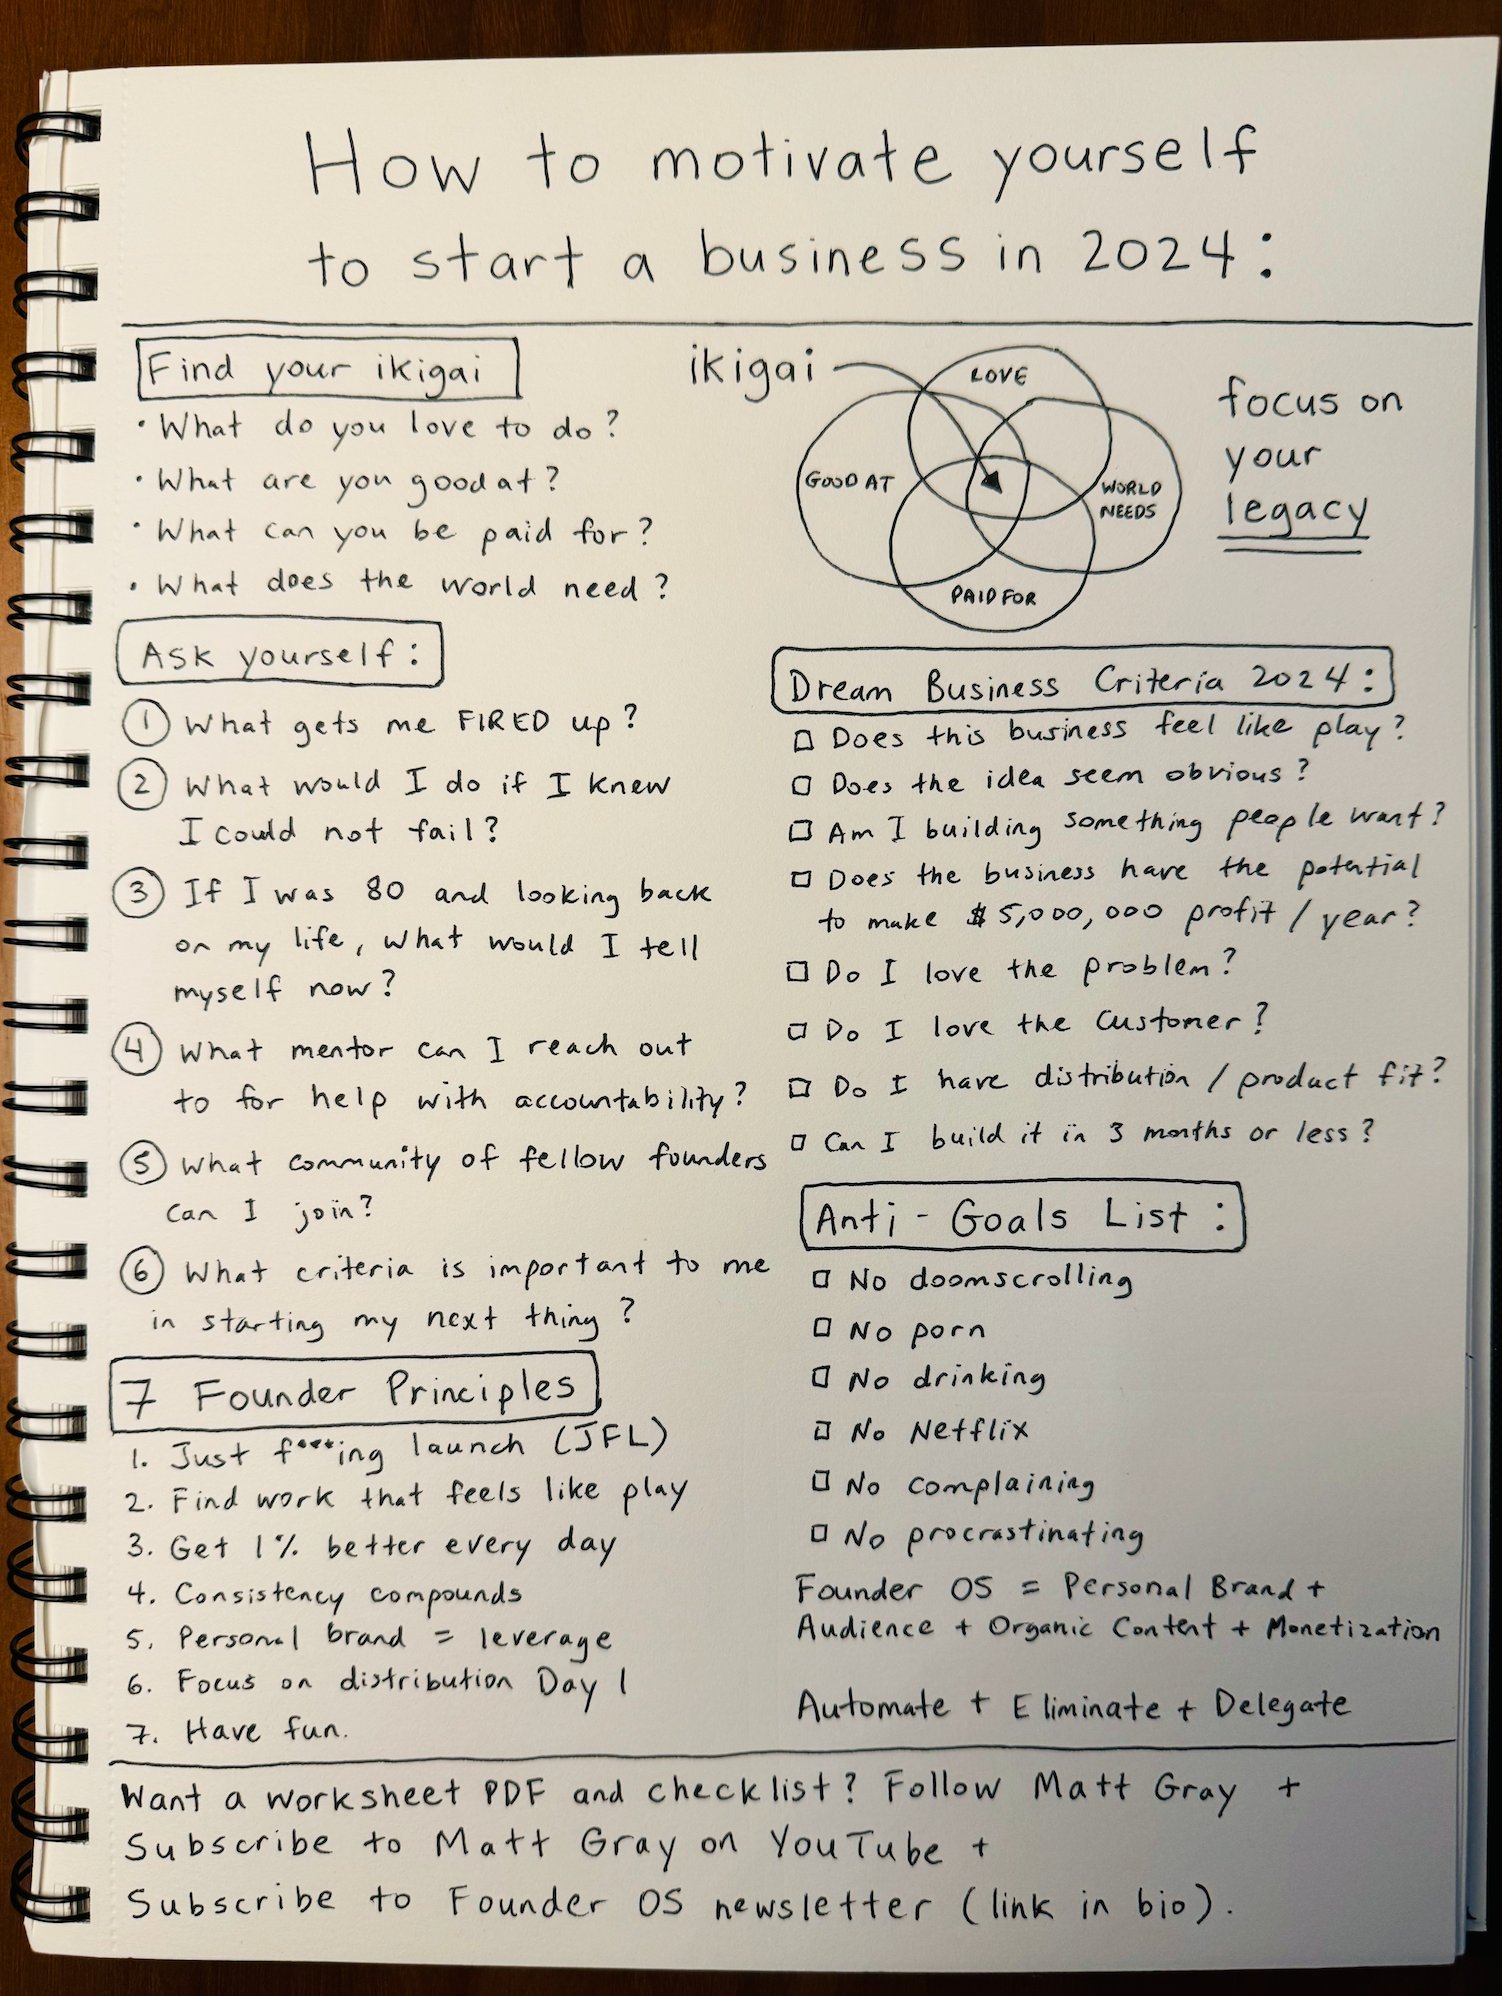 How to motivate yourself
to start a business in 2024:
Find your ikigai
• What do you love to do?
• What are you good at?
• What can you be paid for?
• What does the world need?
ikigai
LOVE
GOOD AT
WORLD
NEEDS
PAID FOR
focus on
your
legacy
Ask yourself:
① What gets me FIRED up?
② What would I do if I knew
I could not fail?
③ If I was 80 and looking back
on my life, what would I tell
myself now?
④ What mentor can I reach out
to for help with accountability?
⑤ What community of fellow founders
can I join?
⑥ What criteria is important to me
in starting my next thing?
7 Founder Principles
1. Just f***ing launch (JFL)
2. Find work that feels like play
3. Get 1% better every day
4. Consistency compounds
5. Personal brand = leverage
6. Focus on distribution Day 1
7. Have fun.
Dream Business Criteria 2024:
□ Does this business feel like play?
□ Does the idea seem obvious?
□ Am I building something people want?
□ Does the business have the potential
to make $5,000,000 profit / year?
□ Do I love the problem?
□ Do I love the customer?
□ Do I have distribution / product fit?
□ Can I build it in 3 months or less?
Anti-Goals List:
□ No doomscrolling
□ No porn
□ No drinking
□ No Netflix
□ No complaining
□ No procrastinating
Founder OS = Personal Brand +
Audience + Organic Content + Monetization
Automate + Eliminate + Delegate
Want a worksheet PDF and checklist? Follow Matt Gray +
Subscribe to Matt Gray on YouTube +
Subscribe to Founder OS newsletter (link in bio).